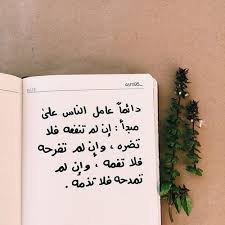 دائماً عامل الناس على
مبدأ : إن لم تنفعه فلا
تضره ، وإن لم تفرحه
فلا تغمه ، وإن لم
تمدحه فلا تذمه .